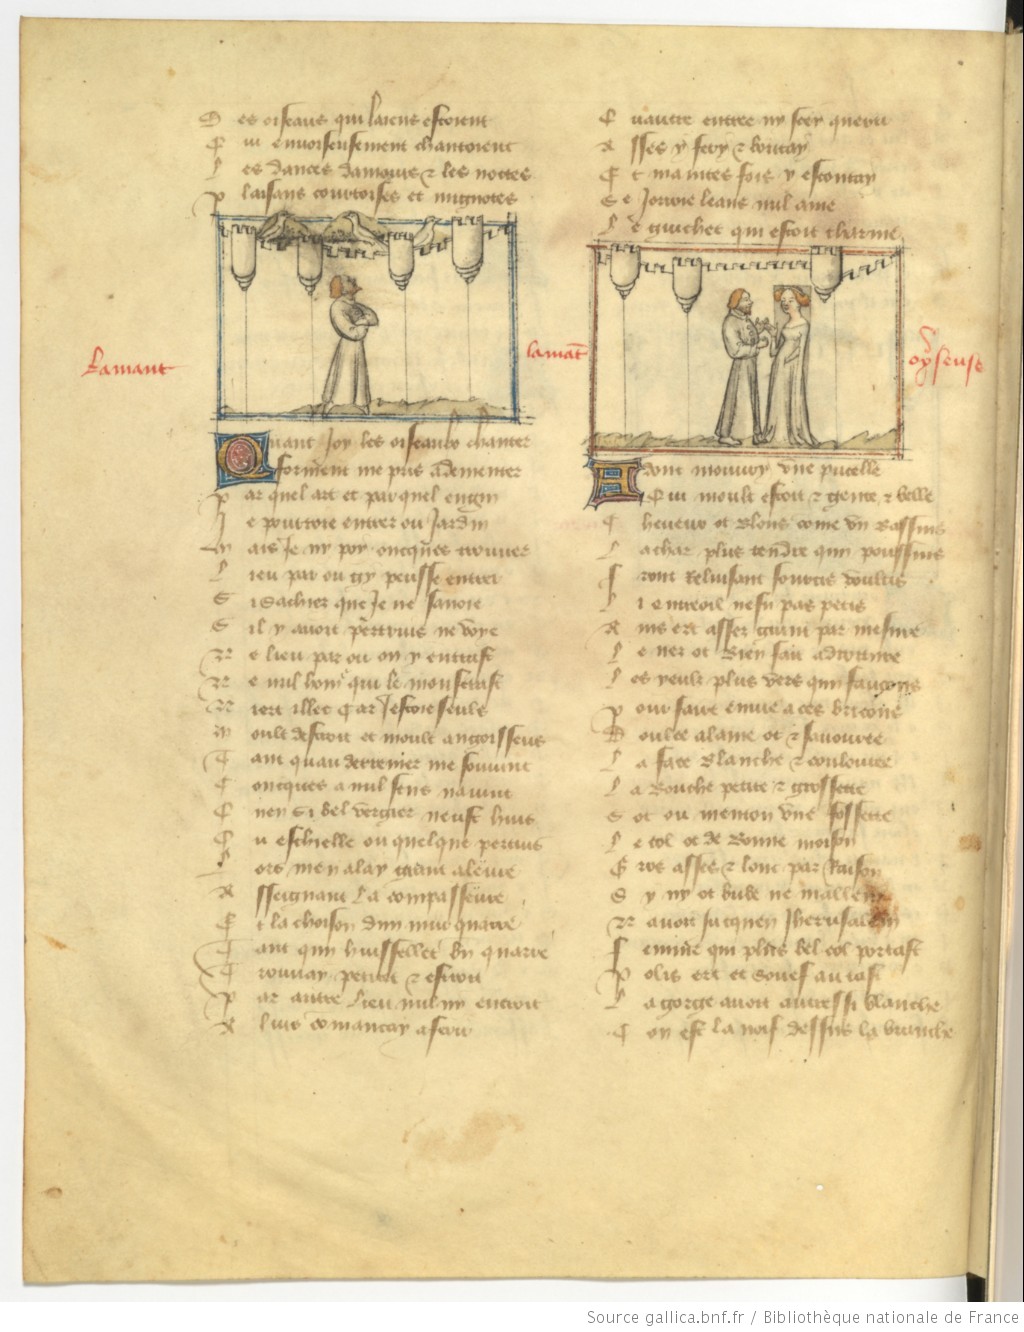 Des oiseaus qui laiens estoient
Qui envoiseusement chantoient
Les dances damours & les nottes
Plaisans courtoises et mignotes
Lamant
Quant joy les oiseaulx chanter
forment me pris a dementer
Par quel art et par quel engin
Je pourroie entrer ou jardin
Mais je ny poy oncques trouver
Lieu par ou gy peusse entrer
Si sachiez que je ne savoie
Sil y avoit pertruis ne voye
Ne lieu par ou on y entrast
Ne nul home qui le monstrast
Niert illec car jestoie seulz
Moult destroit et moult angoisseus
Tant quau derrenier me souvint
Concques a nul sens navint
Quen si bel vergier neust huis
Ou eschielle ou quelque pertuis
Lors men alay grant aleure
Asseignant la compasseure
Et la choison dun mur quarre
Tant quin huisselet bn quarre
Trouvay petitet & estroit
Par autre lieu nul ny entroit
A luis commancay a ferir
Quautre entree ny scey querir
Asses y fery & boutay
Et maintes fois y escoutay
Se jorroie leans nul ame
Le guichet qui estoit charme
lamant
oyseuse
Adont mouvry une pucelle
Qui moult estoit & gente & belle
Cheveux ot blons come un bassins
La char plus tendre quin poussins
Front reluisant sourcis voultis
Lentreoil nestu pas petis
Ains ert assez grant par mesure
Le nez ot bien fait a droiture
Les yeulx plus vers quin faucons
Pour faire envie a ces bricons
Doulce alaine ot & savouree
La face blanche & coulouree
La bouche petite & grossette
Sot ou menton une fossette
Le col ot de bonne moison
Gros asses & lonc par raison
Sy ny ot bube ne mallen
Navoit jucquen Jherusalem
Femme qui plus bel col portast
Polis ert et souef au tast
La gorge avoit autressi blanche
Com est la noif dessus la branche
Source gallica.bnf.fr / Bibliothèque nationale de France